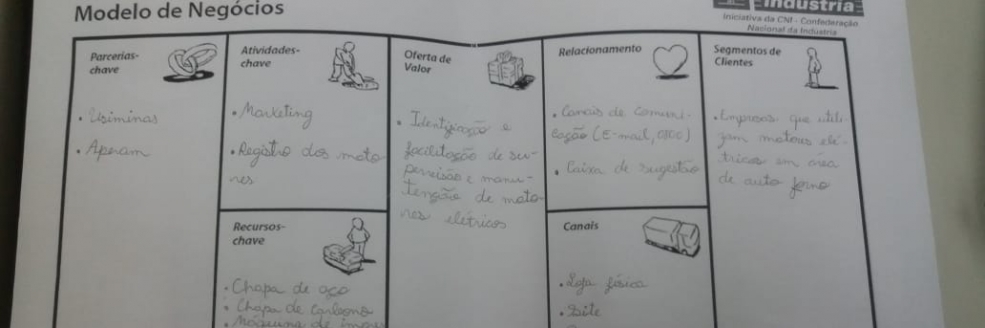 Modelo de Negócios
Indústria
Iniciativa da CNI - Confederação
Nacional da Indústria
Parcerias-
chave
• Usiminas
• Aperam
Atividades-
chave
• Marketing
• Registro dos moto
res
Recursos-
chave
• Chapa de aço
• Chapa de carbono
• Máquina de
Oferta de
Valor
• Identificação e
facilitação de su-
pervisão e manu-
tenção de moto
res elétricos
Relacionamento
• Canais de comuni-
cação (E-mail, 0800)
• Caixa de sugestão
Canais
• Loja física
• Site
Segmentos de
Clientes
• Empresas que utili
zam motores elé-
tricos em área
de auto forno